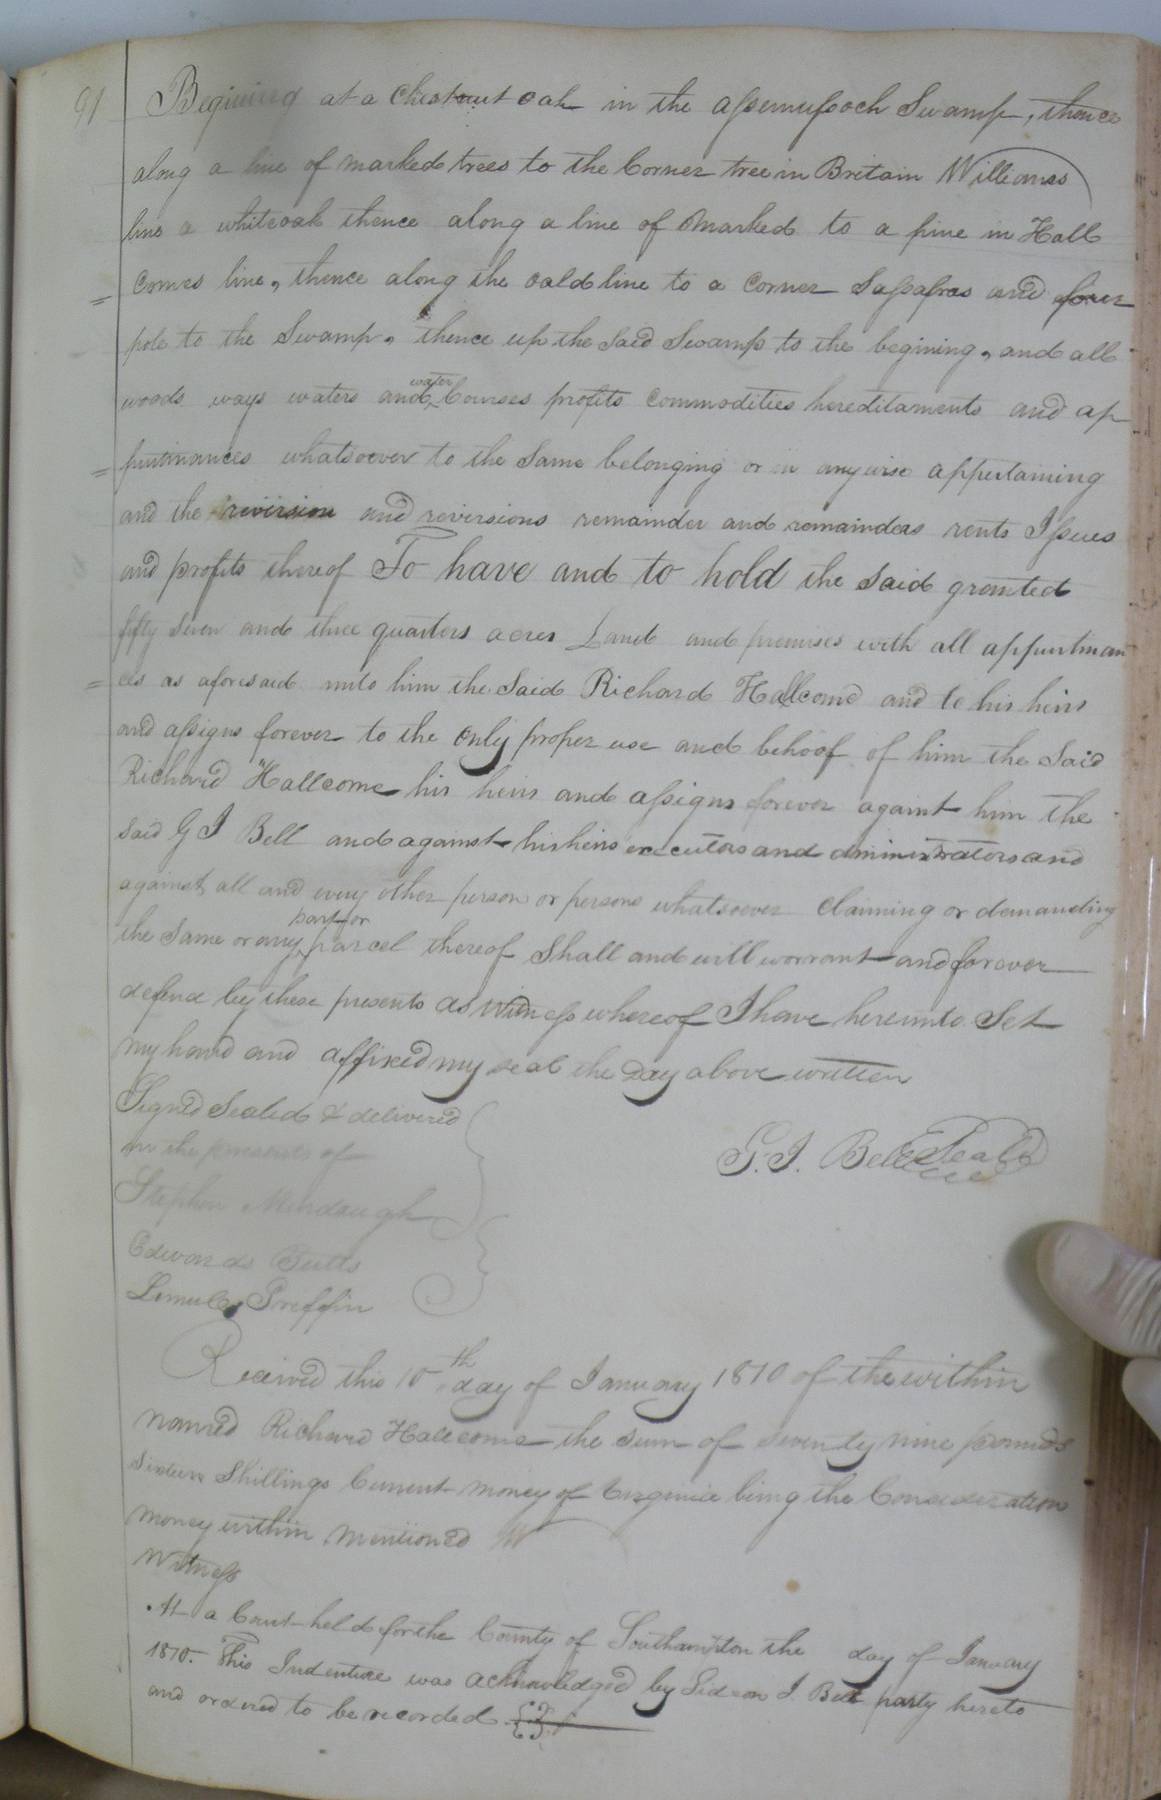 91
Begining at a Chestnut Oak in the assemusoock Swamp, thence
along a line of marked trees to the Corner tree in Britain Williams
line a whiteoak thence along a line of Marked to a pine in Hall
= comes line, thence along the oald line to a Corner Sassafras and four
pole to the Swamp, thence up the said Swamp to the begining, and all
woods ways waters and water Courses profits commodities hereditaments and ap
= purtinances whatsoever to the Same belonging or in anywise appertaining
and the revirsion and reversions remainder and remainders rents Issues
and profits thereof To have and to hold the said granted
fifty seven and three quarters acres Land and premises with all appurtinan
= ces as aforesaid unto him the Said Richard Hallcome and to his heirs
and assigns forever to the only proper use and behoof of him the Said
Richard Hallcome his heirs and assigns forever against him the
said G J Bell and against his heirs executors and aministrators and
against all and every other person or persons whatsoever claiming or demanding
the Same or any part or parcel thereof Shall and will warrant and forever
defend by these presents as Witness whereof I have hereunto Set
my hand and affixed my seal the Day above written
Signed Sealed & delivered
in the presents of
G. J. Bell Seal
Stephen Mendaugh
Edwards Butts
Lemuel Greffin
Received this 10th day of January 1810 of the within
named Richard Hallcome the sum of seventy nine pounds
Sixteen Shillings Current money of Virginia being the Consideration
money within mentioned
Witness
At a Court held for the County of Southampton the day of January
1810. This Indenture was acknowledged by Gideon J. Bell party hereto
and ordered to be recorded